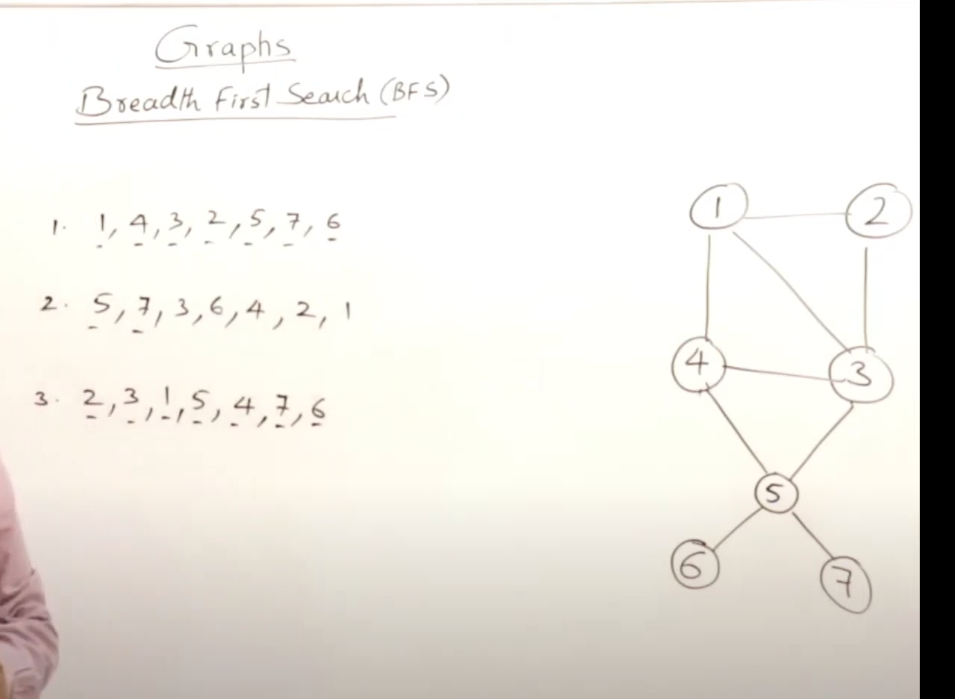 Graphs
Breadth First Search (BFS)
1. 1, 4, 3, 2, 5, 7, 6
2. 5, 7, 3, 6, 4, 2, 1
3. 2, 3, 1, 5, 4, 7, 6
1
2
4
3
5
6
7